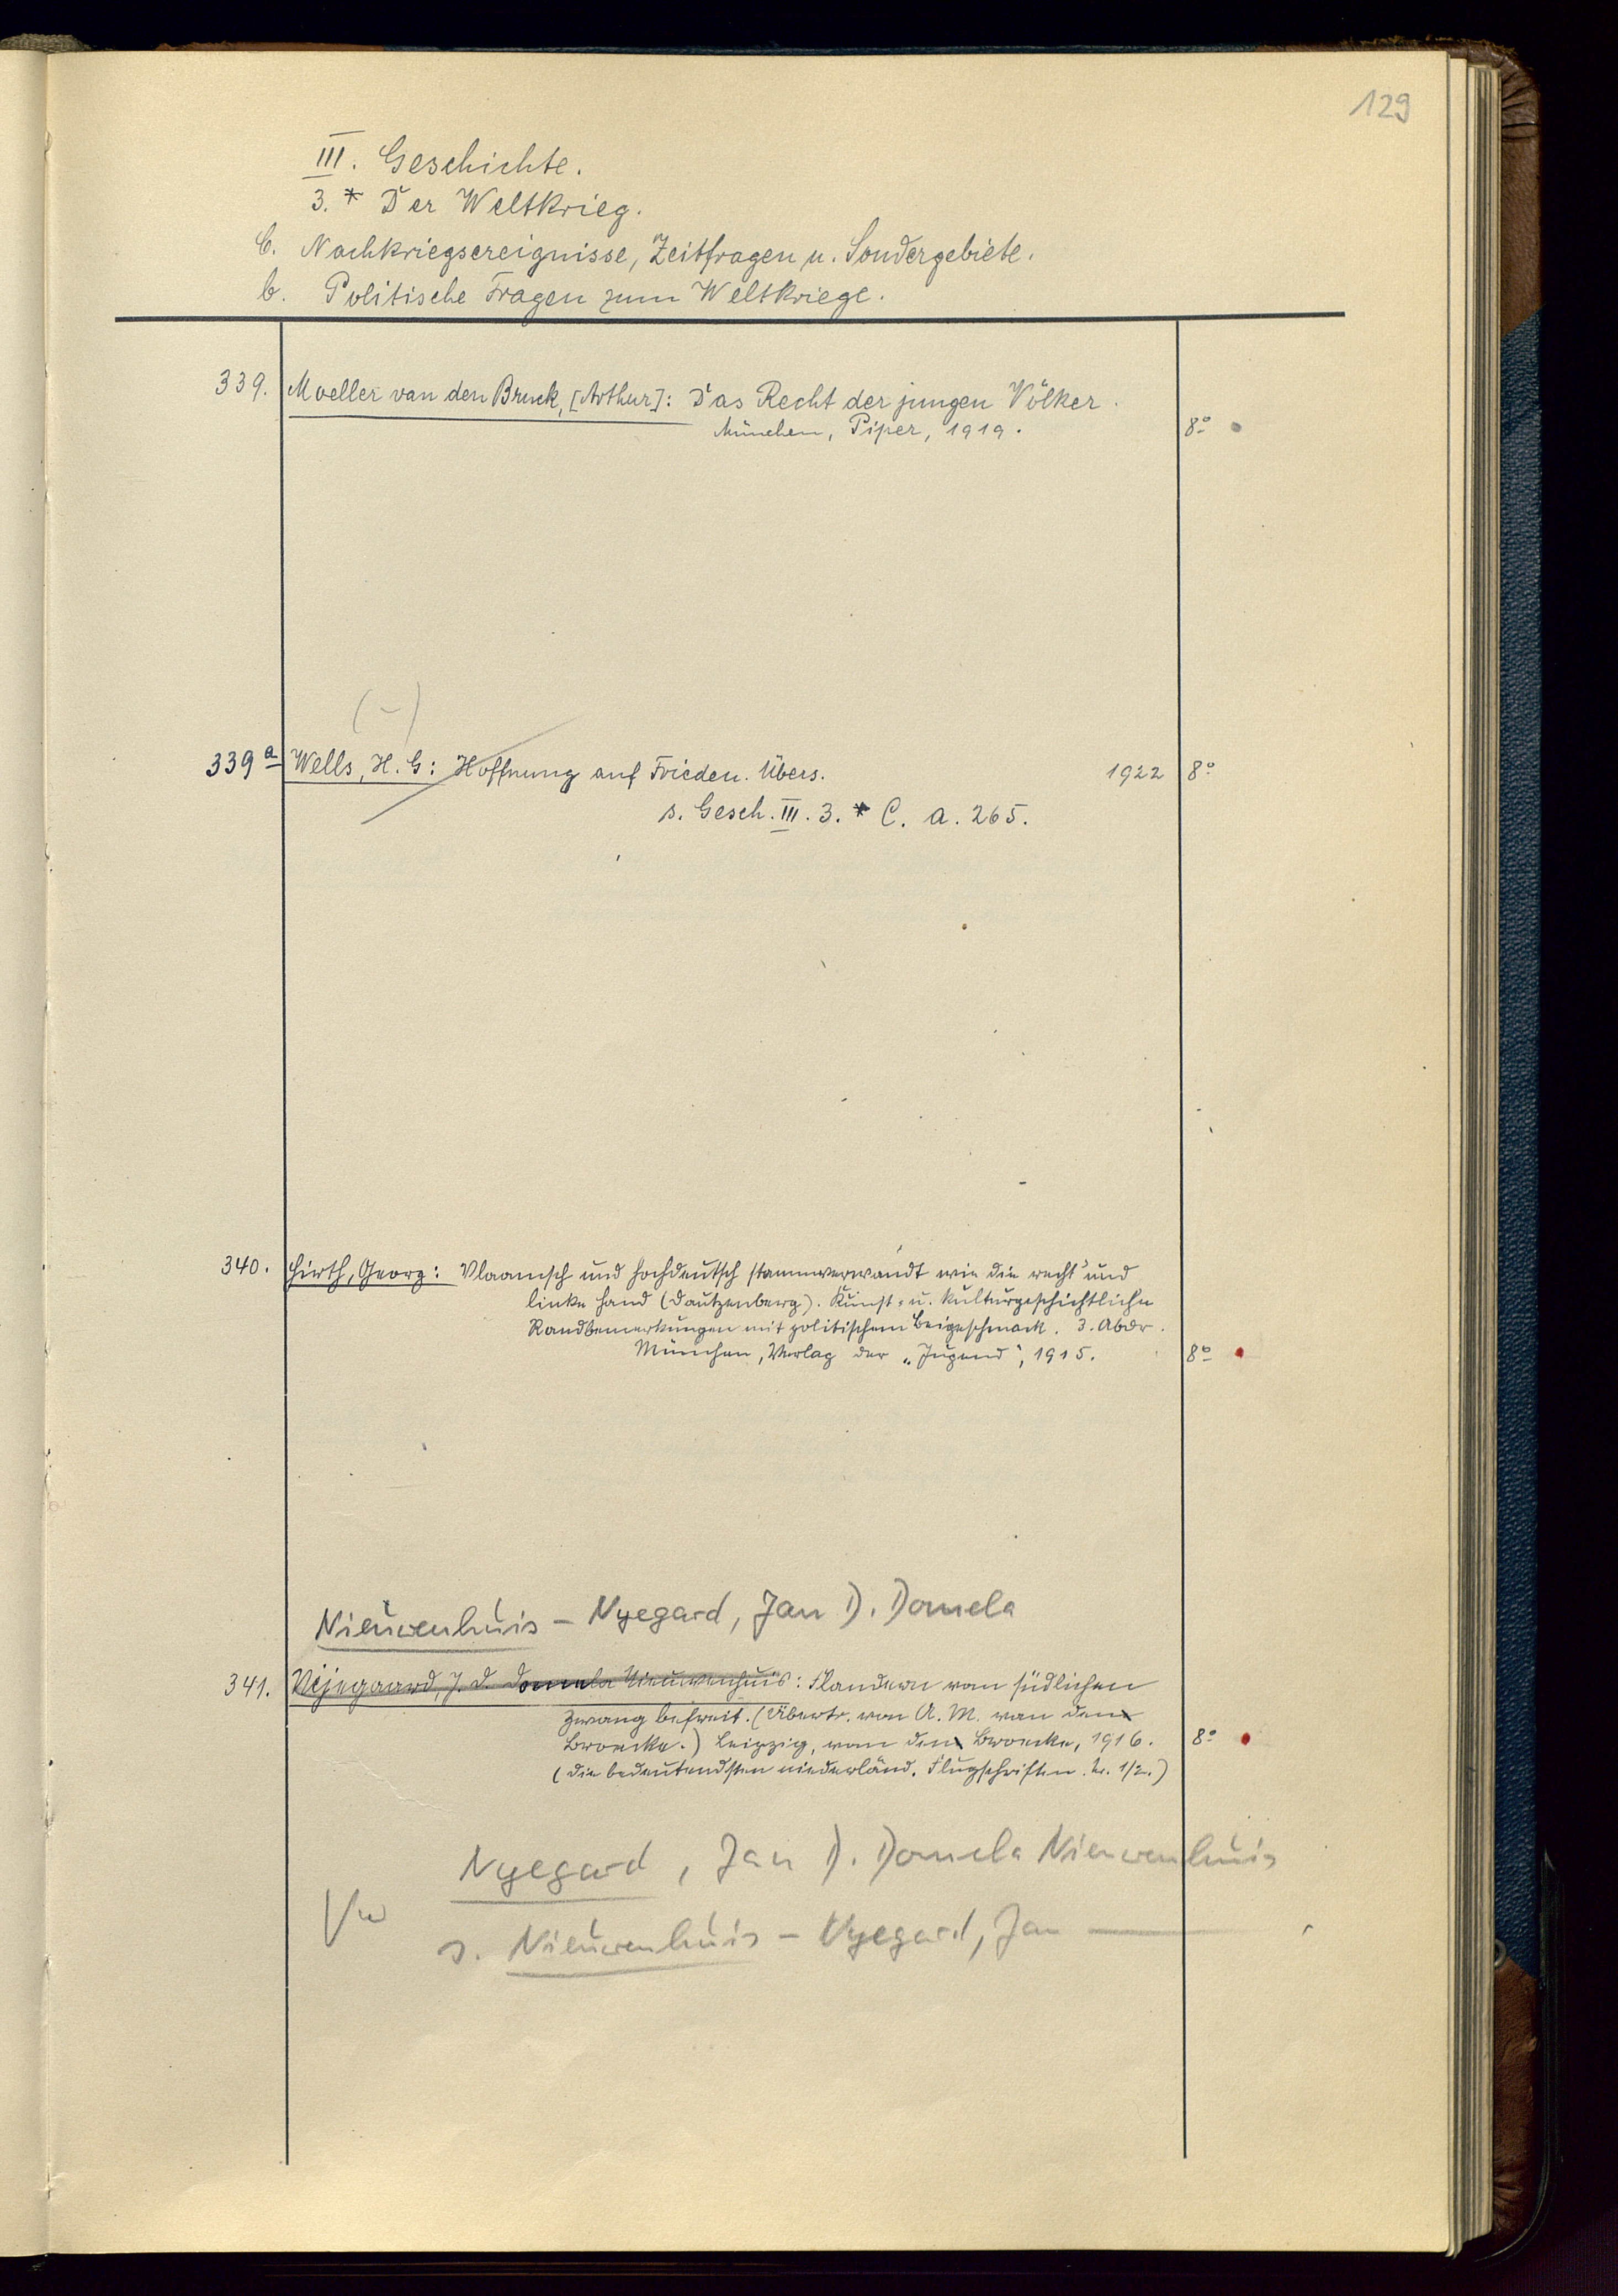 129
III. Geschichte.
3. * Der Weltkrieg.
C. Nachkriegsereignisse, Zeitfragen u. Sondergebiete.
b. Politische Fragen zum Weltkriege.
339. Moeller van den Bruck, [Arthur]: Das Recht der jungen Völker.
München, Piper, 1919. 8º
(-)
339a Wells, H. G: Hoffnung auf Frieden. Übers. 1922 8º
s. Gesch. III. 3. * C. a. 265.
340. Hirth, Georg: Vlaamsch und hochdeutsch stammverwandt wie die recht' und
linke Hand (Dautzenberg). Kunst- u. kulturgeschichtliche
Randbemerkungen mit politischem Beigeschmack. 3. Abdr.
München, Verlag der „Jugend", 1915. 8º
Nieuwenhuis - Nyegard, Jan D. Domela
341. Nijegaard, J. D. Domela Nieuwenhuis: Flandern vom südlichen
Zwang befreit. (Übertr. von A. M. van den
Broecke.) Leipzig, van den Broecke, 1916. 8º
(Die bedeutendsten niederländ. Flugschriften. Nr. 1/2.)
Nyegard, Jan D. Domela Nieuwenhuis
Vw
s. Nieuwenhuis - Nyegard, Jan —